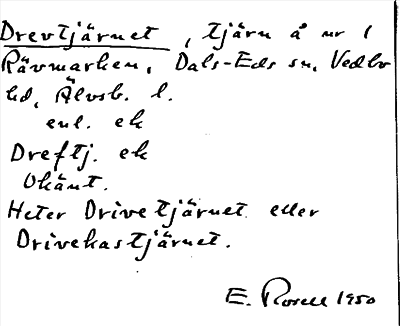 Drevtjärnet, tjärn å nr 1
Rävmarken, Dals-Eds sn, Vedbo
hd, Älvsb. l.
enl. ek
Dreftj. ek
Okänt.
Heter Drivetjärnet eller
Drivekastjärnet.
E. Rosell 1950